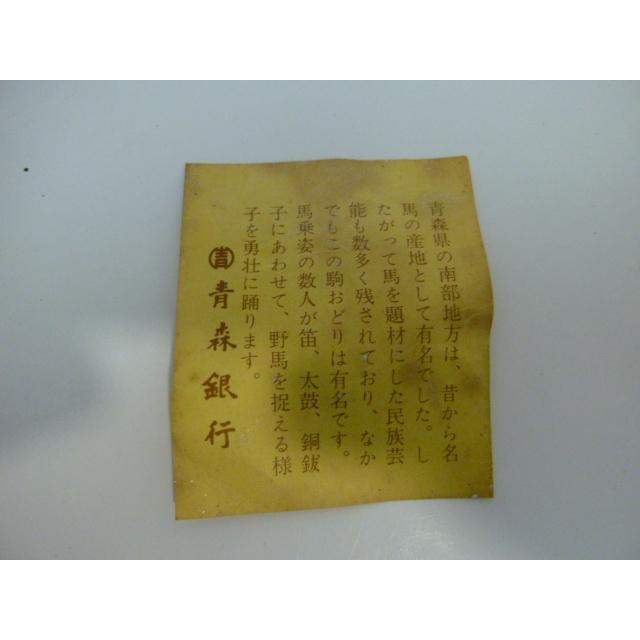 青森県の南部地方は、昔から名
馬の産地として有名でした。し
たがって馬を題材にした民族芸
能も数多く残されており、なか
でもこの駒おどりは有名です。
馬乗姿の数人が笛、太鼓、銅鈸
子にあわせて、野馬を捉える様
子を勇壮に踊ります。
青森銀行